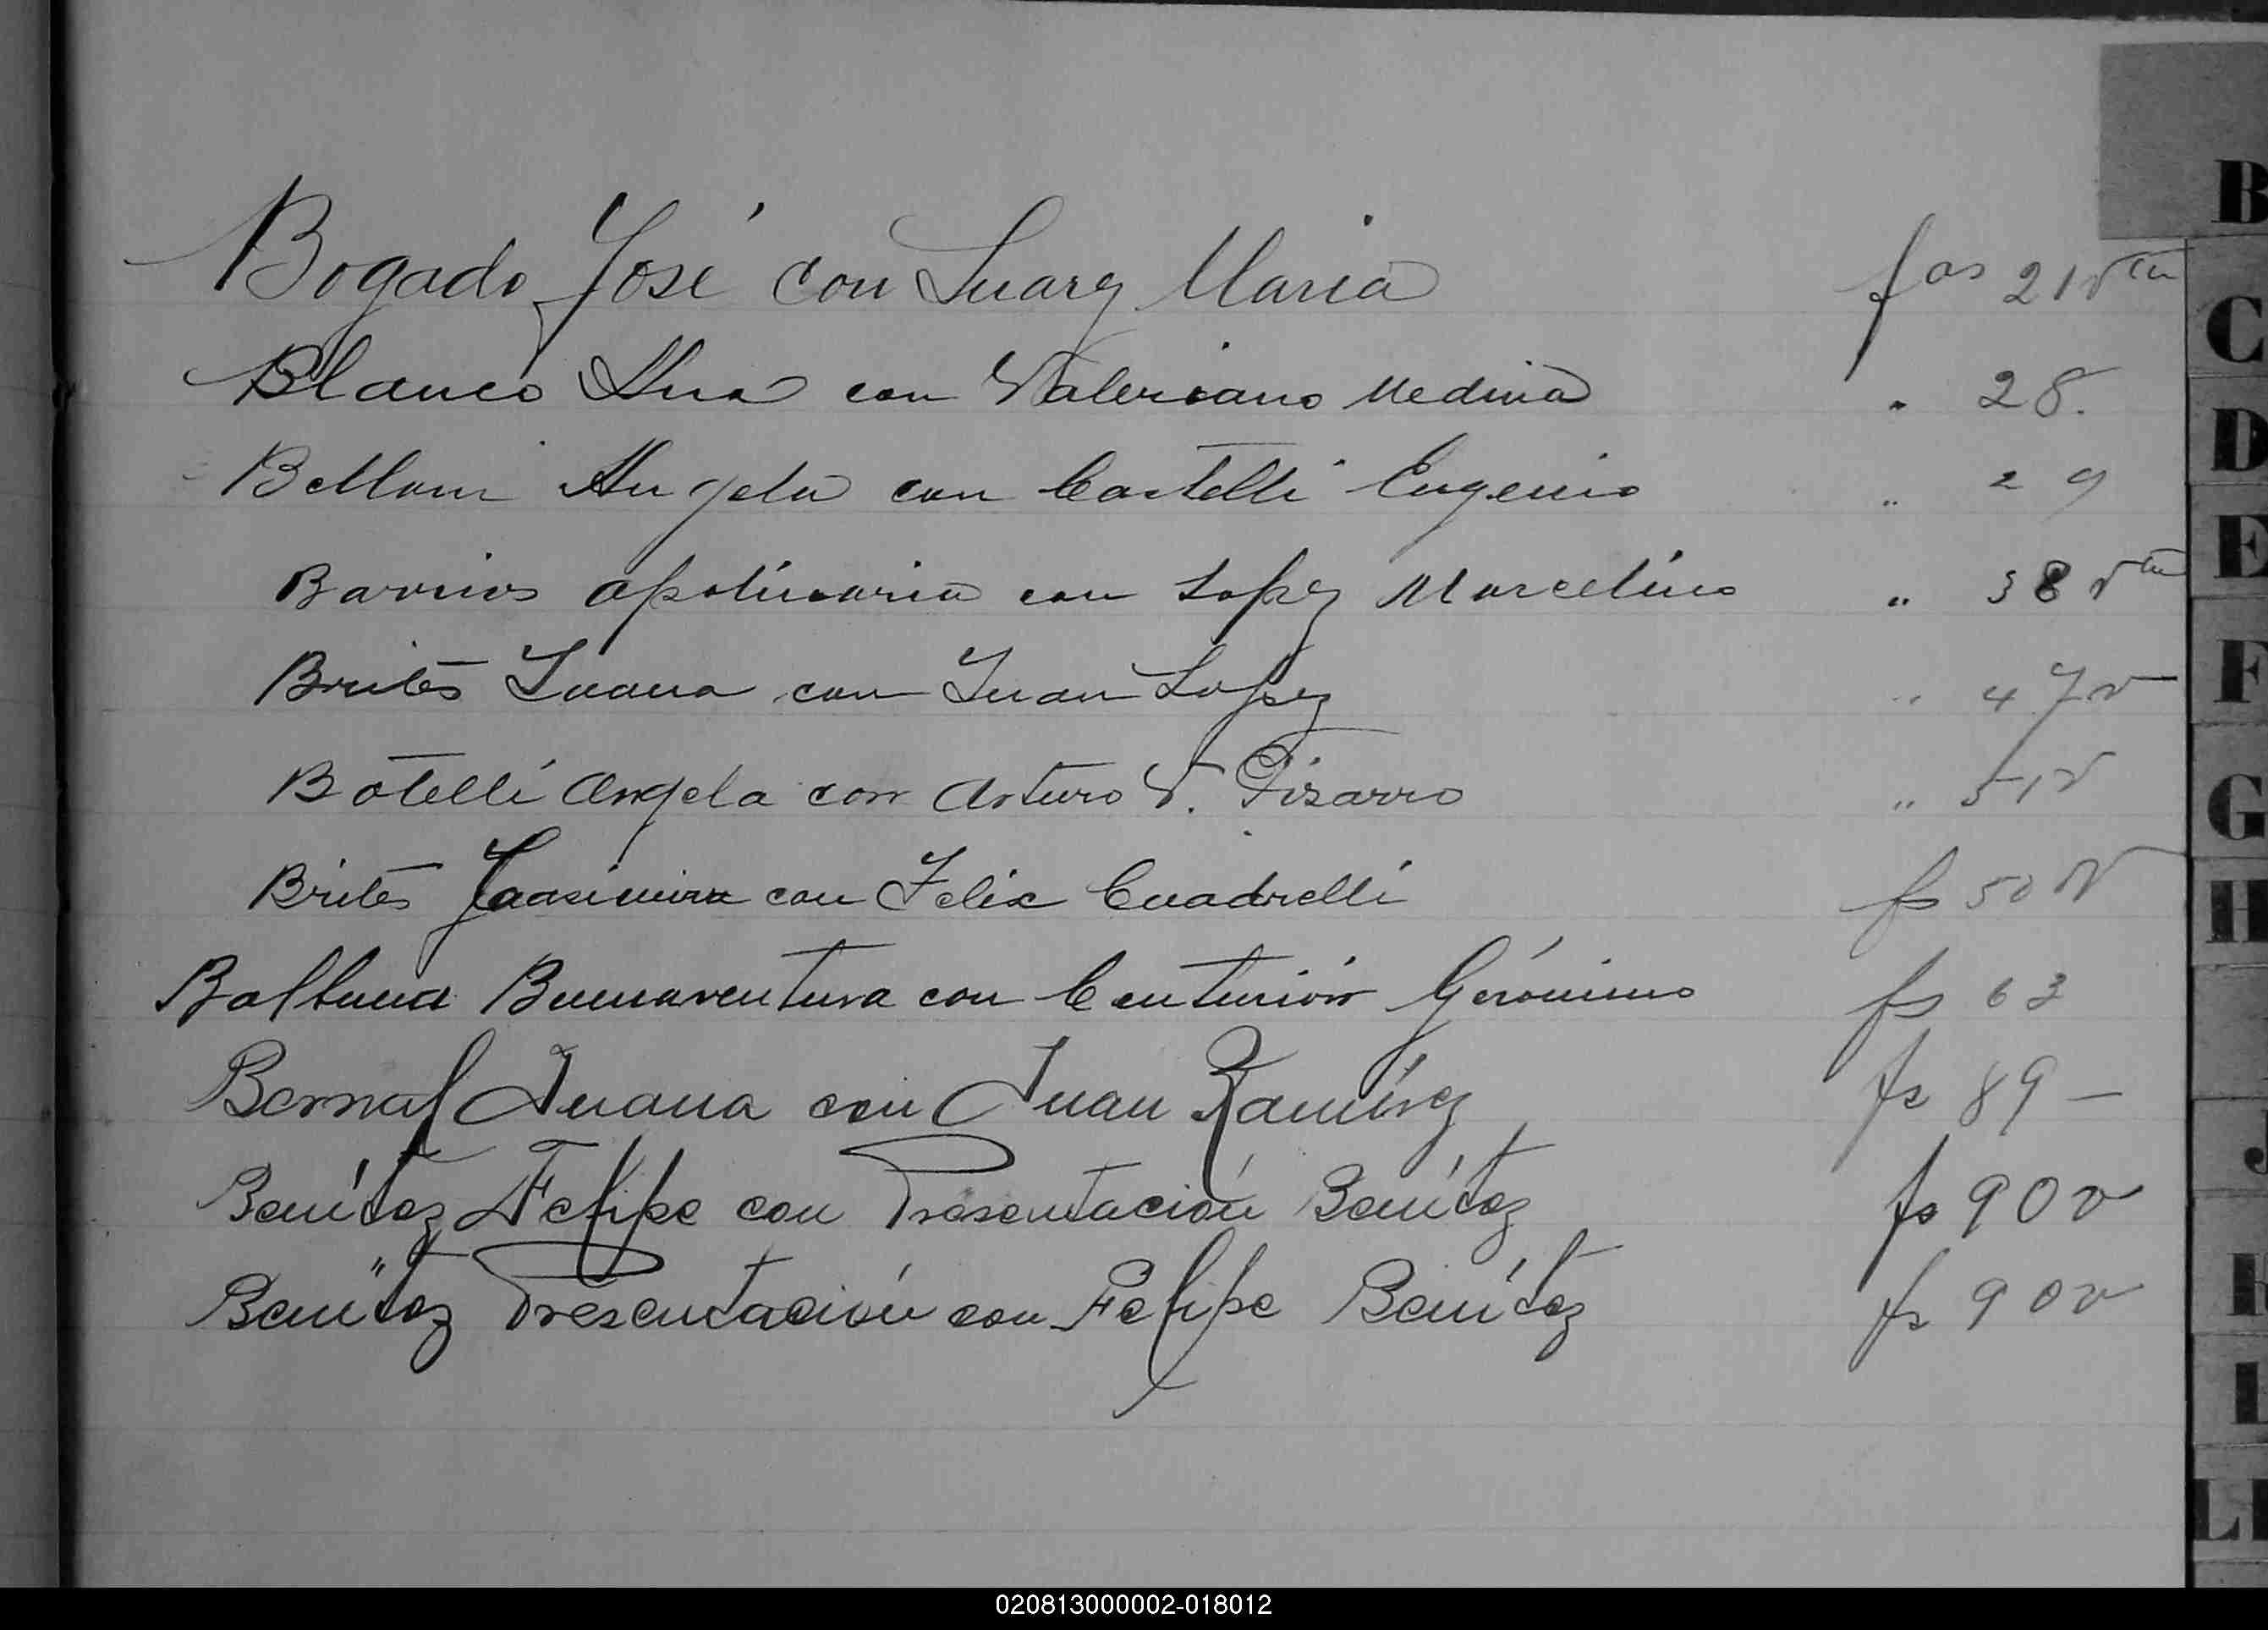 B
Bogado José con Suarez Maria fas 21 vta
C
Blanco Ana con Valeriano Medina " 28.
D
Angela con Castelli Eugenio " 29
E
Barrios Apolinaria con Lopez Marcelino " 38 vta
F
Brites Juana con Juan Lopez " 47 v
G
Botelli Angela con Arturo V. Pizarro " 51 v
H
Brites con Felix Cuadrelli fs 50 v
Buenaventura con Centurión Gerónimo fs 63
Bernal Juana con Juan Ramírez fs 89 -
J
Benítez Felipe con Presentación Benítez fs 90 v
Benítez Presentación con Felipe Benítez fs 90 v
L
LL
020813000002-018012